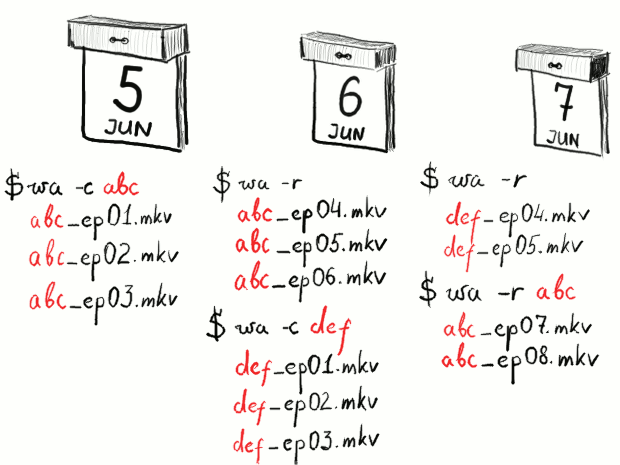 5
JUN
$ wa -c abc
abc_ep01.mkv
abc_ep02.mkv
abc_ep03.mkv
6
JUN
$ wa -r
abc_ep04.mkv
abc_ep05.mkv
abc_ep06.mkv
$ wa -c def
def_ep01.mkv
def_ep02.mkv
def_ep03.mkv
7
JUN
$ wa -r
def_ep04.mkv
def_ep05.mkv
$ wa -r abc
abc_ep07.mkv
abc_ep08.mkv